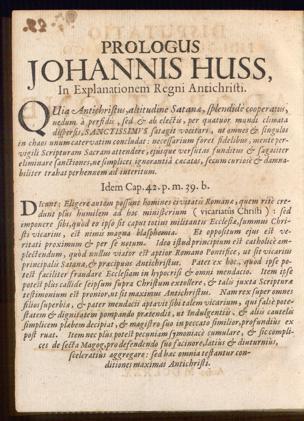 PROLOGUS
JOHANNIS HUSS,
In Explanationem Regni Antichristi.
QUia Antichristus, altitudine Satanæ, splendidè cooperatus,
nedum à perfidis, sed & ab electis, per quatuor mundi climata
dispersis, SANCTISSIMUS satagit vocitari, ut omnes & singulos
in chaos unum catervatim concludat: necessarium foret fidelibus, mente per-
vigili Scripturam Sacram attendere, ejusque versutias funditus & sagaciter
eliminare sanctiones, ne simplices ignorantiâ cæcatos, secum curiosè & damna-
biliter trahat perhennem ad interitum.
Idem Cap. 42. p. m. 39. b.
DIcunt: Eligere autem possunt homines civitatis Romanæ, quem ritè cre-
dunt plus humilem ad hoc ministerium (vicariatûs Christi): sed
imponere sibi, quòd eo ipso sit caput totius militantis Ecclesiæ, summus Chri-
sti vicarius, est nimis magna blasphemia. Et oppositum ejus est ve-
ritati proximum & per se notum. Ideo istud principium est catholicè am-
plectendum, quòd nullus viator est aptior Romano Pontifice, ut sit vicarius
principalis Satanæ, & præcipuus Antichristus. Patet ex hoc, quòd ipse po-
test faciliter fraudare Ecclesiam in hypocrisi & omni mendacio. Item ipse
potest plus callidè seipsum supra Christum extollere, & talis juxta Scripturæ
testimonium est pronior, ut sit maximus Antichristus. Nam rex super omnes
filios superbiæ, & pater mendacii aptavit sibi talem vicarium, qui falsè pote-
statem & dignitatem pompando prætendit, ut Indulgentiis & aliis cautelis
simplicem plebem decipiat, & magistro suo in peccato similior, profundius ex
post ruat. Item nec plus potest pecuniam symoniacè cumulare, & sic compli-
ces de secta Magog, pro defendendo suo facinore, latius & diuturnius,
sceleratius aggregare: sed hæc omnia testantur con-
ditiones maximas Antichristi.